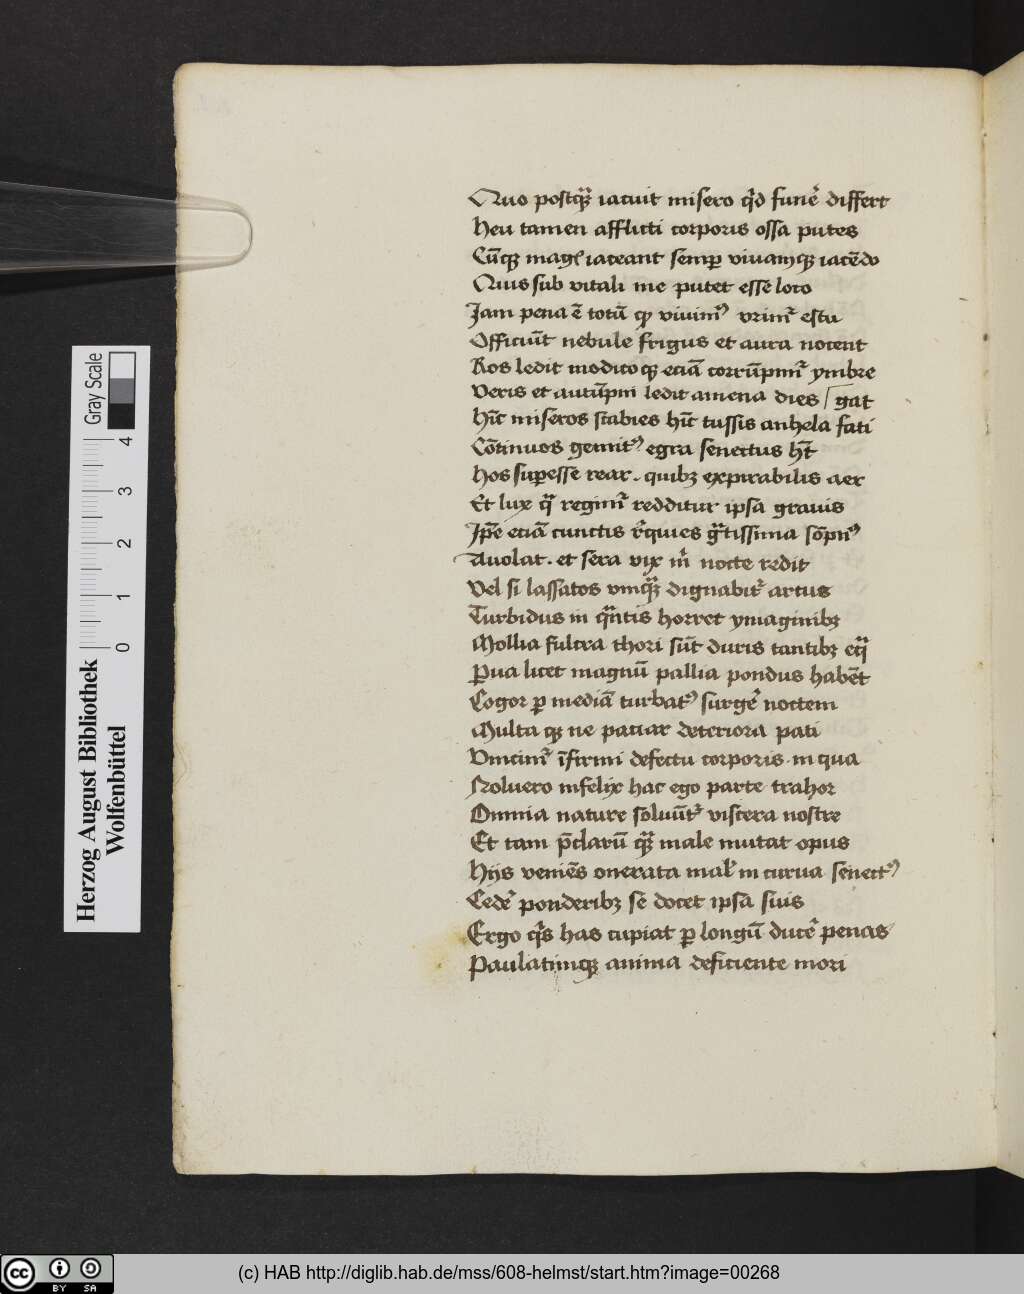 Quo postqꝫ iacuit misero qd funē differt
Heu tamen afflicti corporis ossa putes
Cūqꝫ magis iaceant semꝑ viuamqꝫ iacēdo
Quis sub vitali me putet esse loco
Jam pena ē totū ꝙ viuimꝰ vrimᷣ estu
Officiūt nebule frigus et aura nocent
Ros ledit modicoqꝫ eciā corrūpimᷣ ymbre
Veris et autūpni ledit amena dies | gat
Hīc miseros scabies hīc tussis anhela fati
Cōtinuos gemitꝰ egra senectus hꝫt
Hos suꝑesse rear. quibꝫ expirabilis aer
Et lux qᷓ regimᷣ redditur ipsa grauis
Jpē eciā cunctis rͥquies gᷓtissima sōpnꝰ
Auolat. et sera vix mͥ nocte redit
Vel si lassatos vmqᷓꝫ dignabitᷣ artus
Turbidus in qᷓntis horret ymaginibꝫ
Mollia fulcra thori sūt duris cautibꝫ eqᷓ
Ꝑua licet magnū pallia pondus habēt
Cogor ꝑ mediā turbatꝰ surgē noctem
Multa qꝫ ne paciar deteriora pati
Vincimᷣ īfirmi defectu corporis in qua
Noluero infelix hac ego parte trahor
Omnia nature soluūtᷣ viscera nostre
Et tam p̄clarū qᷓꝫ male nutat opus
Hijs veniēs onerata mal̓ in curua senectꝰ
Cedē ponderibꝫ se docet ipsa suis
Ergo qͥs has cupiat ꝑ longū ducē penas
Paulatimqꝫ anima deficiente mori
Herzog August Bibliothek
Wolfenbüttel
Gray Scale
0 1 2 3 4
cc BY SA
(c) HAB http://diglib.hab.de/mss/608-helmst/start.htm?image=00268